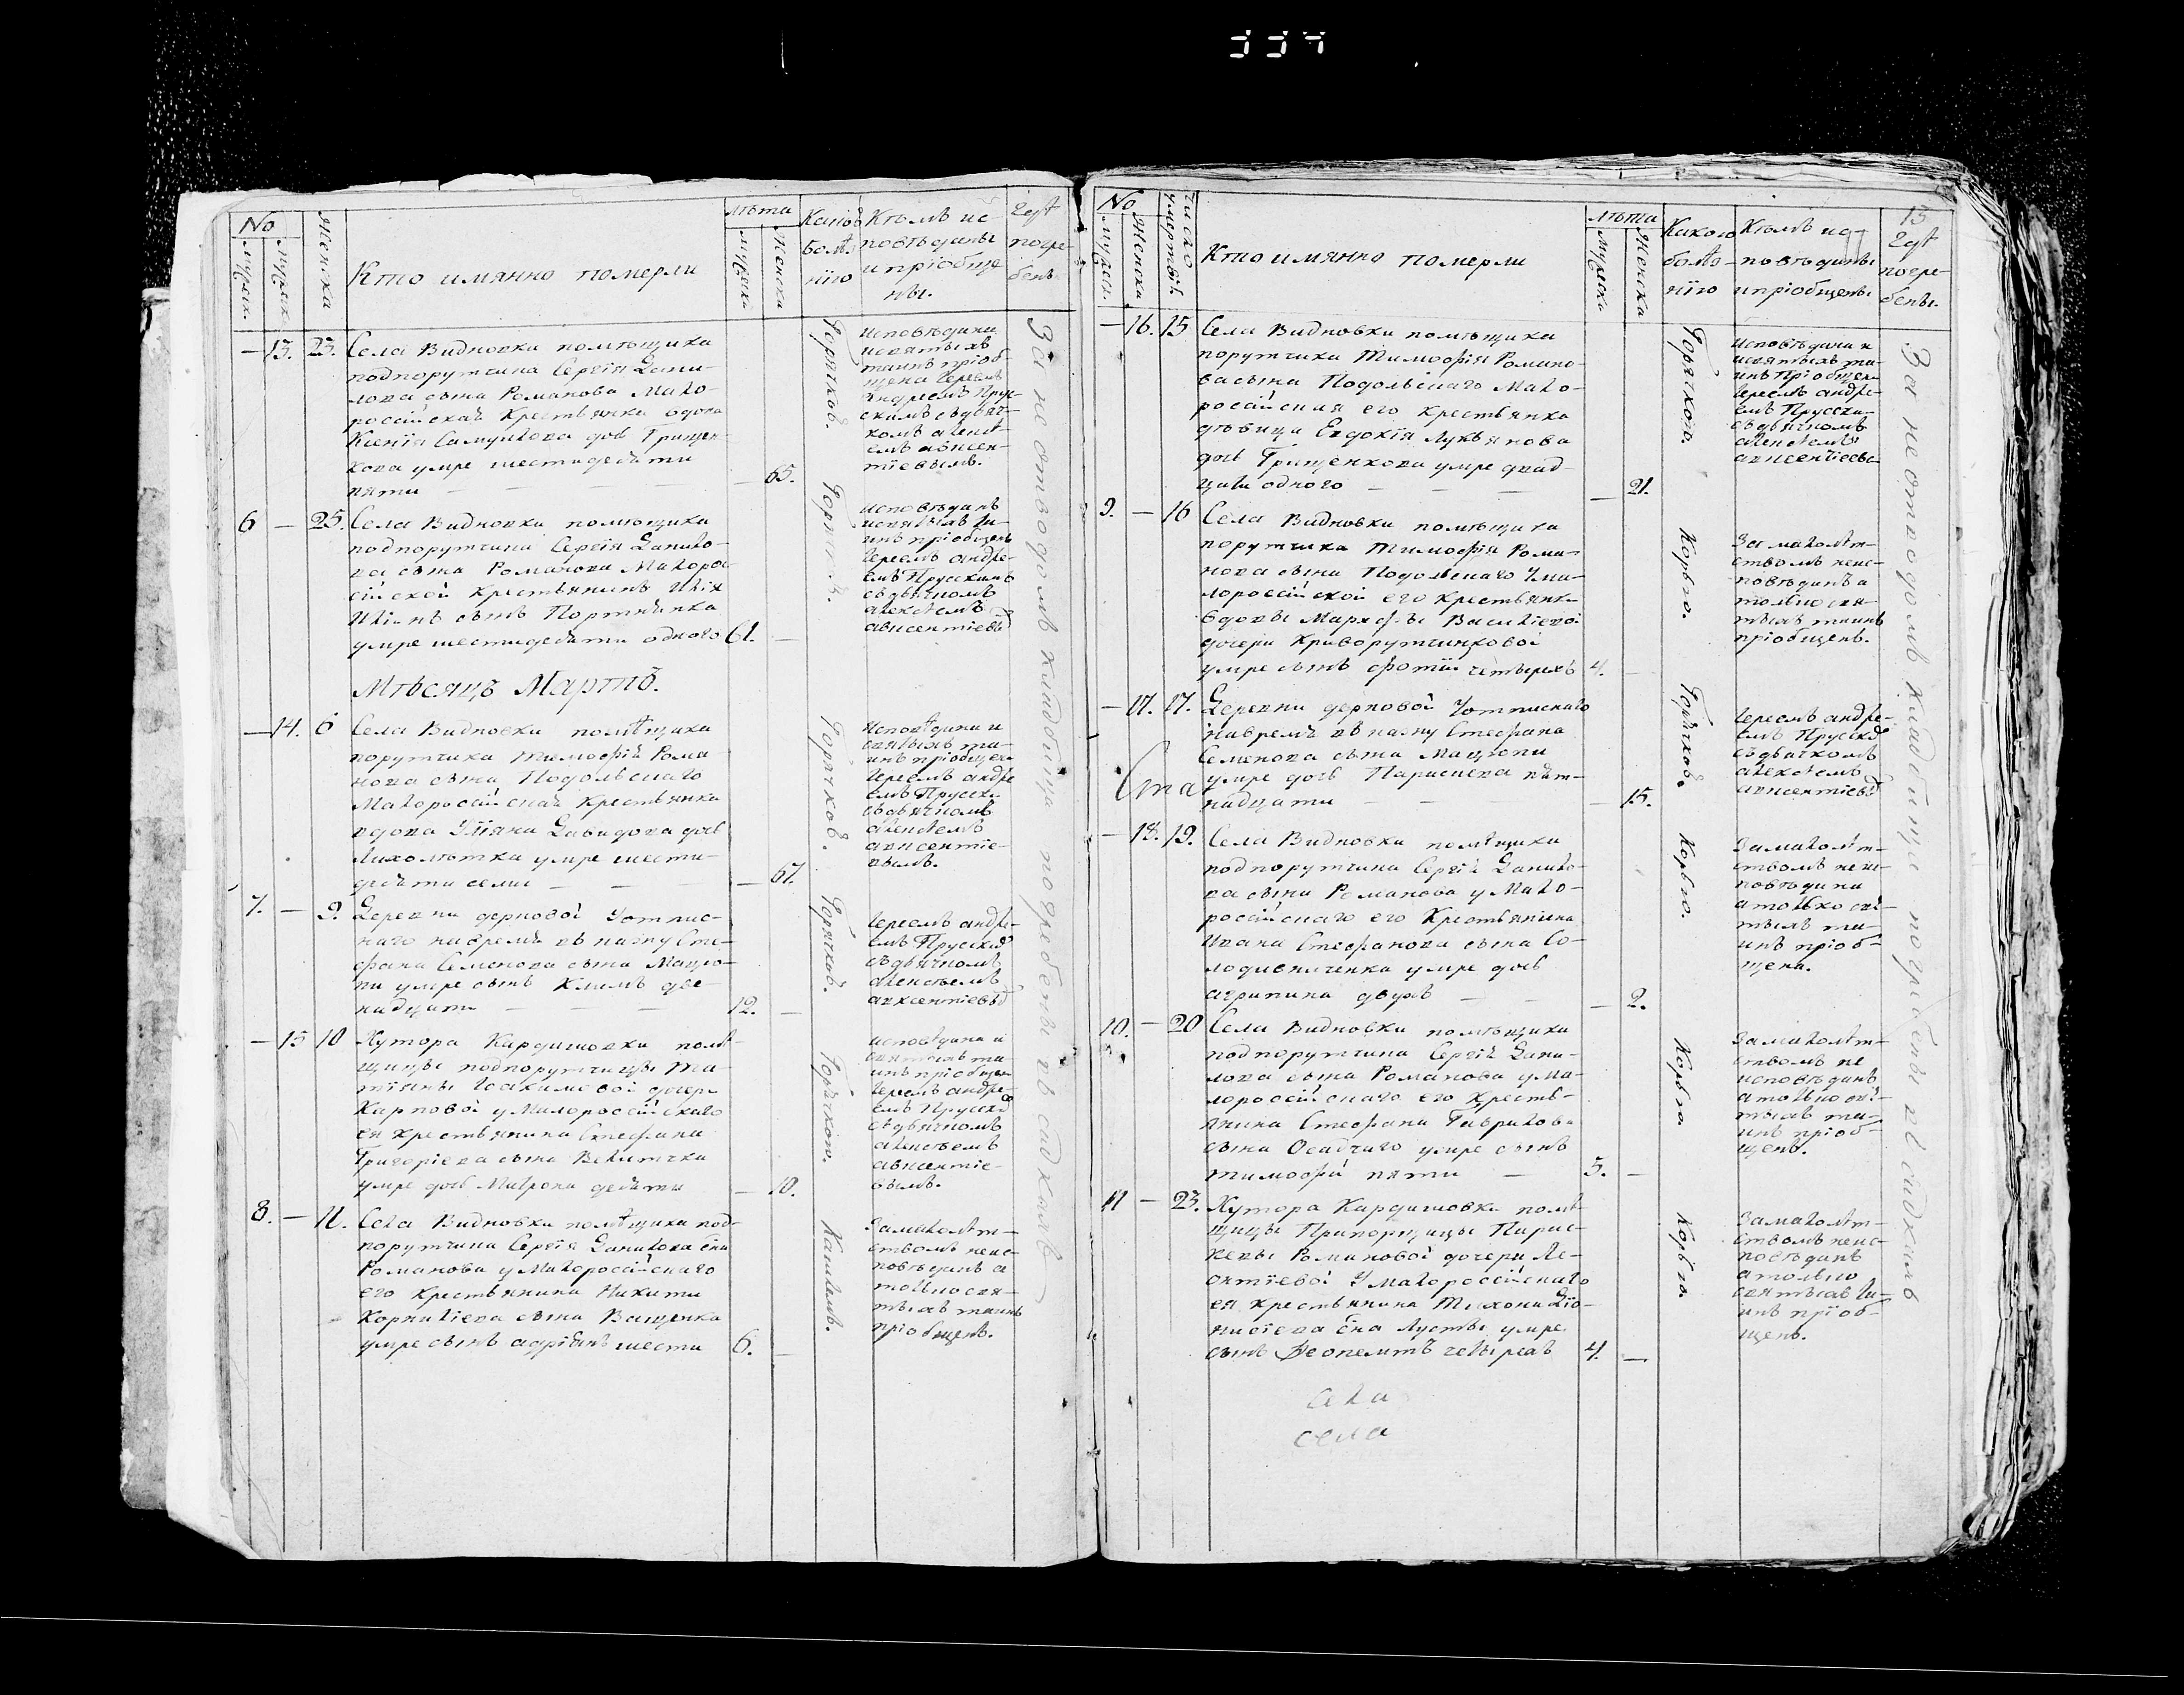 334
No
Женска
Кто имянно померли
лѣта
мужска
женска
Какой болѣзнію
Кѣмъ исповѣданы и пріобщены.
гдѣ погребены
13. 23. Села Видновки помѣщика
подпорутчика Сергія Дани-
лова сына Романова Мало-
россійская Крестьянка вдова
Ксенія Самуилова дочь Грищен-
кова умре шестидесяти
пяти — 65.
Горячкою.
исповѣдана
и святыхъ
таинъ пріоб-
щена Іереемъ
Андреемъ Прус-
скимъ съ дьяч-
комъ алексѣ-
емъ авксен-
тіевымъ.
За неотводомъ кладбища погребены въ садкахъ
6 — 25. Села Видновки помѣщика
подпорутчика Сергія Данило-
ва сына Романова Малорос-
сійской Крестьянинъ Илія
Ильинъ сынъ Портнянка
умре шестидесяти одного 61. —
исповѣданъ
и святыхъ та-
инъ пріобщенъ
Іереемъ андре-
емъ Прусскимъ
съ дьячкомъ
алексѣемъ
авксентіевы
Мѣсяцъ Мартъ.
— 14. 6 Села Видновки помѣщика
порутчика Тимофія Рома-
нова сына Подольского
Малороссійская Крестьянка
вдова Уліяна Давидова дочь
Лихолѣтка умре шести-
десяти семи — 67.
Горячкою.
Исповѣдана и
святыхъ та-
инъ пріобщена
Іереемъ андре
емъ Прусски
съ дьячкомъ
алексѣемъ
авксентіе-
вымъ.
7. — 9. Деревни дерновой Уотпис-
наго на время въ казну Сте-
фана Семенова сына Мацю-
пи умре сынъ Климъ две-
надцати 12. —
Горячкою.
Іереемъ андре-
емъ Прусскимъ
съ дьячкомъ
алексѣемъ
авксентіевы
— 15 10 Хутора Кардишовки помѣ-
щицы подпорутчицы Та-
тіяны Іоакимовой дочери
Карповой у Малороссійскаго
ея крестьянина Стефана
Григоріева сына Величка
умре дочь Матрона десяти — 10.
Горячкою.
исповѣдана и
святыхъ та-
инъ пріобщена
Іереемъ андре-
емъ Прусски
съ дьячкомъ
алексѣемъ
авксентіе-
вымъ.
8. — 11. Села Видновки помѣщика под-
порутчика Сергія Данилова сна
Романова у Малороссійскаго
его Крестьянина Никиты
Корниліева сына Ващенка
умре сынъ адріянъ шести 6. —
Кашлемъ.
За малолѣт-
ствомъ неис-
повѣданъ а
только свя-
тыхъ таинъ
пріобщенъ.
No
мужеск.
Женска
число умертвій
Кто имянно померли
лѣта
мужска
Женска
Какою болѣзнію
Кѣмъ исповѣданы и пріобщены
13
гдѣ погребены.
— 16. 15 Села Видновки помѣщика
порутчика Тимофія Романо-
ва сына Подольскаго Мало-
россійская его крестьянка
дѣвица Евдокія Лукьянова
дочь Грищенкова умре двад-
цати одного — 21.
Горячкою.
исповѣдана и
и святыхъ та-
инъ Пріобщена
Іереемъ андре-
емъ Прусски-
съ дьячкомъ
алексѣемъ
авксентіевы
За неотводомъ кладбища погребены въ садкахъ
9. — 16 Села Видновки помѣщика
порутчика Тимофія Рома-
нова сына Подольскаго У ма-
лороссійской его крестьянки
вдовы Марфы Василіевой
дочери Криворутчинковой
умре сынъ фотій четырехъ 4. —
Корью.
За малолѣт-
ствомъ неис-
повѣданъ а
только свя-
тыхъ таинъ
пріобщенъ.
— 17. 17. Деревни дерновой Уотписнаго
на время въ казну Стефана
Семенова сына Мацюпи
умре дочь Параскева пят-
надцати — 15.
Ста
Горячкою.
Іереемъ андре-
емъ Прусски
съ дьячкомъ
алексѣемъ
авксентіевы
— 18. 19. Села Видновки помѣщика
подпорутчика Сергія Данило-
ва сына Романова у Мало-
россійскаго его Крестьянина
Ивана Стефанова сына Со-
лодивниченка умре дочь
агрипина двухъ — 2.
Корью.
За малолѣт-
ствомъ неис-
повѣдана
а только свя-
тыхъ та-
инъ пріоб-
щена.
10. — 20 Села Видновки помѣщика
подпорутчика Сергія Дани-
лова сына Романова у Ма-
лороссійскаго его Кресть-
янина Стефана Гаврилова
сына Осадчаго умре сынъ
тимофій пяти — 5. —
Корью
За малолѣт-
ствомъ не
исповѣданъ
а только свя-
тыхъ та-
инъ пріоб-
щенъ.
11 — 23. Хутора Кардишовки помѣ-
щицы Прапорщицы Парас-
кевы Романовой дочери Ле-
онтіевой У Малороссійскаго
ея крестьянина Тихона Діо-
нисіева сна Лусты умре
сынъ Феопемтъ четырехъ 4. —
Корью.
За малолѣт-
ствомъ неис-
повѣданъ
а только
святыхъ та-
инъ пріоб-
щенъ.
села
села